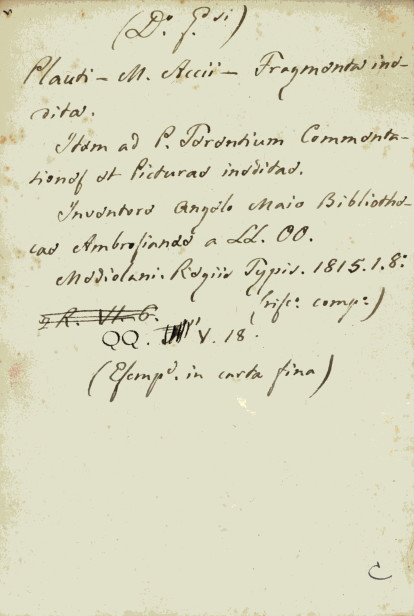 (D.º G.si)
Plauti - M. Accii - Fragmenta ine-
dita.
Item ad P. Terentium Commenta-
tiones et Picturae ineditae.
Inventore Angelo Maio Bibliothe-
cae Ambrosianae a LL. OO.
Mediolani. Regiis Typis. 1815. 1. 8.º
(rife. comp.º)
R. VI. 6.
QQ. V. 18.
(Esemp.e in carta fina)
C